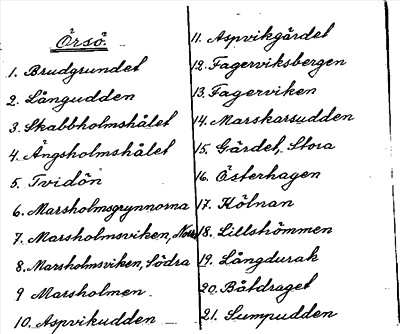 Örsö.
1. Brudgrundet
2. Långudden
3. Skabbholmshålet
4. Ängsholmshålet
5. Tvidön
6. Marsholmsgrynnorna
7. Marsholmsviken, Norra
8. Marsholmsviken, Södra
9 Marsholmen.
10. Aspvikudden
11. Aspvikgärdet
12. Fagerviksbergen
13. Fagerviken
14. Marskarsudden
15. Gärdet, Stora
16. Österhagen
17. Hölnan
18. Lillshömmen
19. Långdurak
20. Båtdraget
21. Sumpudden